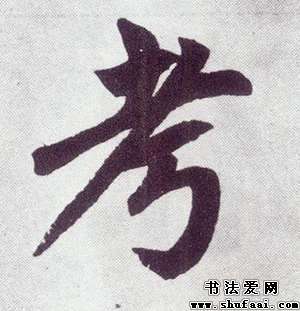 考
书法爱网
www.shufaai.com